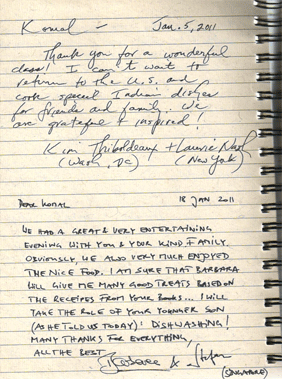 Komal – Jan. 5, 2011
Thank you for a wonderful
class! I can't wait to
return to the U.S. and
cook special Indian dishes
for friends and family. We
are grateful & inspired!
Kim Thibodeaux + Laurie
(Wash, DC) (New York)
DEAR KOMAL 18 JAN 2011
WE HAD A GREAT & VERY ENTERTAINING
EVENING WITH YOU & YOUR KIND FAMILY.
OBVIOUSLY, WE ALSO VERY MUCH ENJOYED
THE NICE FOOD. I AM SURE THAT BARBARA
WILL GIVE ME MANY GOOD TREATS BASED ON
THE RECEIPES FROM YOUR BOOKS... I WILL
TAKE THE ROLE OF YOUR YOUNGER SON
(AS HE TOLD US TODAY): DISHWASHING!
MANY THANKS FOR EVERYTHING,
ALL THE BEST
Barbara & Stefan
(SINGAPORE)